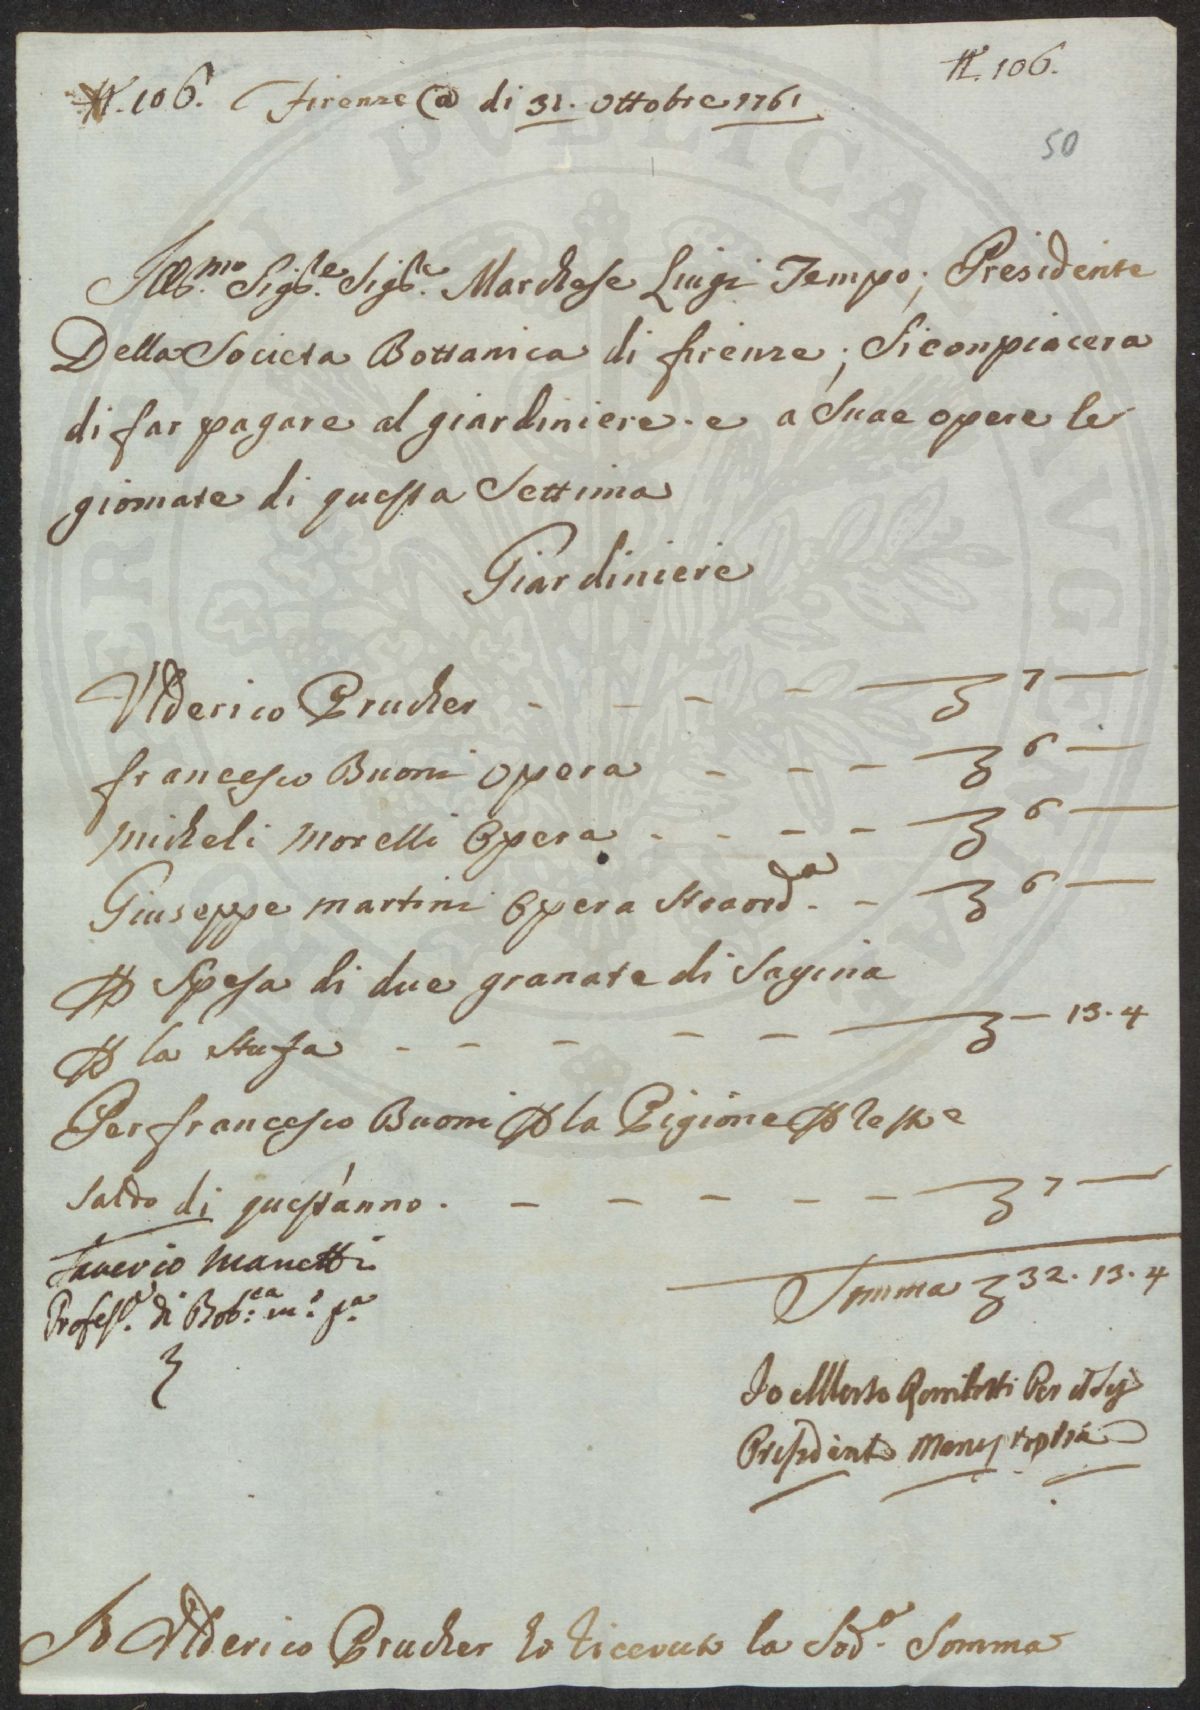 N. 106. Firenze @ di 31. Ottobre 1761
N. 106.
50
Ill.mo Sig.re Sig.re Marchese Luigi Tempo; Presidente
Della Societa Bottanica di firenze; Siconpiacera
di far pagare al giardiniere. e a Suae opere le
giornate di questa Settima
Giardiniere
Ulderico Prucher - - - - 7 —
francesco Buoni opera - - - 6 —
Micheli Morelli Opera - - - - 6 —
Giuseppe martini Opera Straord.a - 6 —
Spesa di due granate di Sagina
la stufa - - - - - — 13. 4
Per francesco Buoni la Pigione
saldo di quest'anno. - - - - - 7 —
Saverio Manetti
Profess.e di Bot.ca m.o p.a
Somma 32. 13. 4
Io Alberto Per il Sig
Presidente
Io Ulderico Prucher ho ricevuto la Sod.a Somma
PUBLICAE